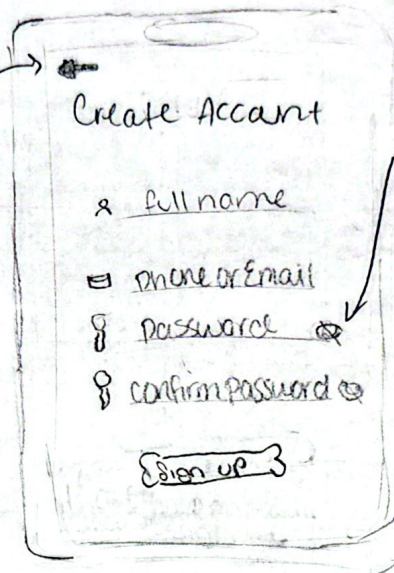 Create Account
full name
phone or Email
password
confirm password
Sign up